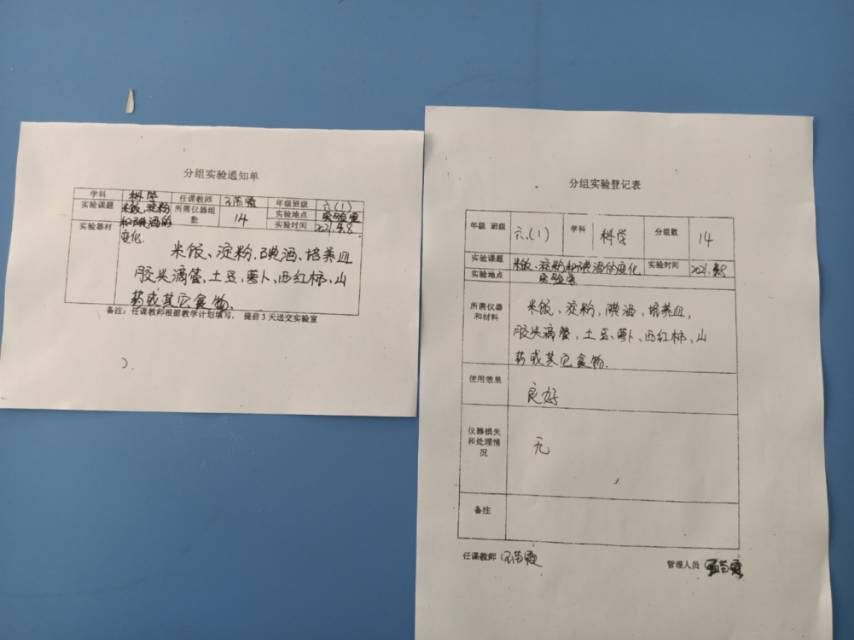 分组实验通知单
学科 科学 任课教师 年级班级 六(1)
实验课题 米饭、淀粉和碘酒的变化 所需仪器组数 14 实验地点 实验室
实验时间 2021.9.8
实验器材
米饭、淀粉、碘酒、培养皿
胶头滴管、土豆、萝卜、西红柿、山
药或其它食物.
备注:任课教师根据教学计划填写,提前3天送交实验室
分组实验登记表
年级 班级 六.(1) 学科 科学 分组数 14
实验课题 米饭、淀粉和碘酒的变化 实验时间
实验地点 实验室
所需仪器
和材料
米饭、淀粉、碘酒、培养皿,
胶头滴管、土豆、萝卜、西红柿、山
药或其它食物.
使用效果 良好
仪器损失
和处理情
况
无
备注
任课教师 管理人员